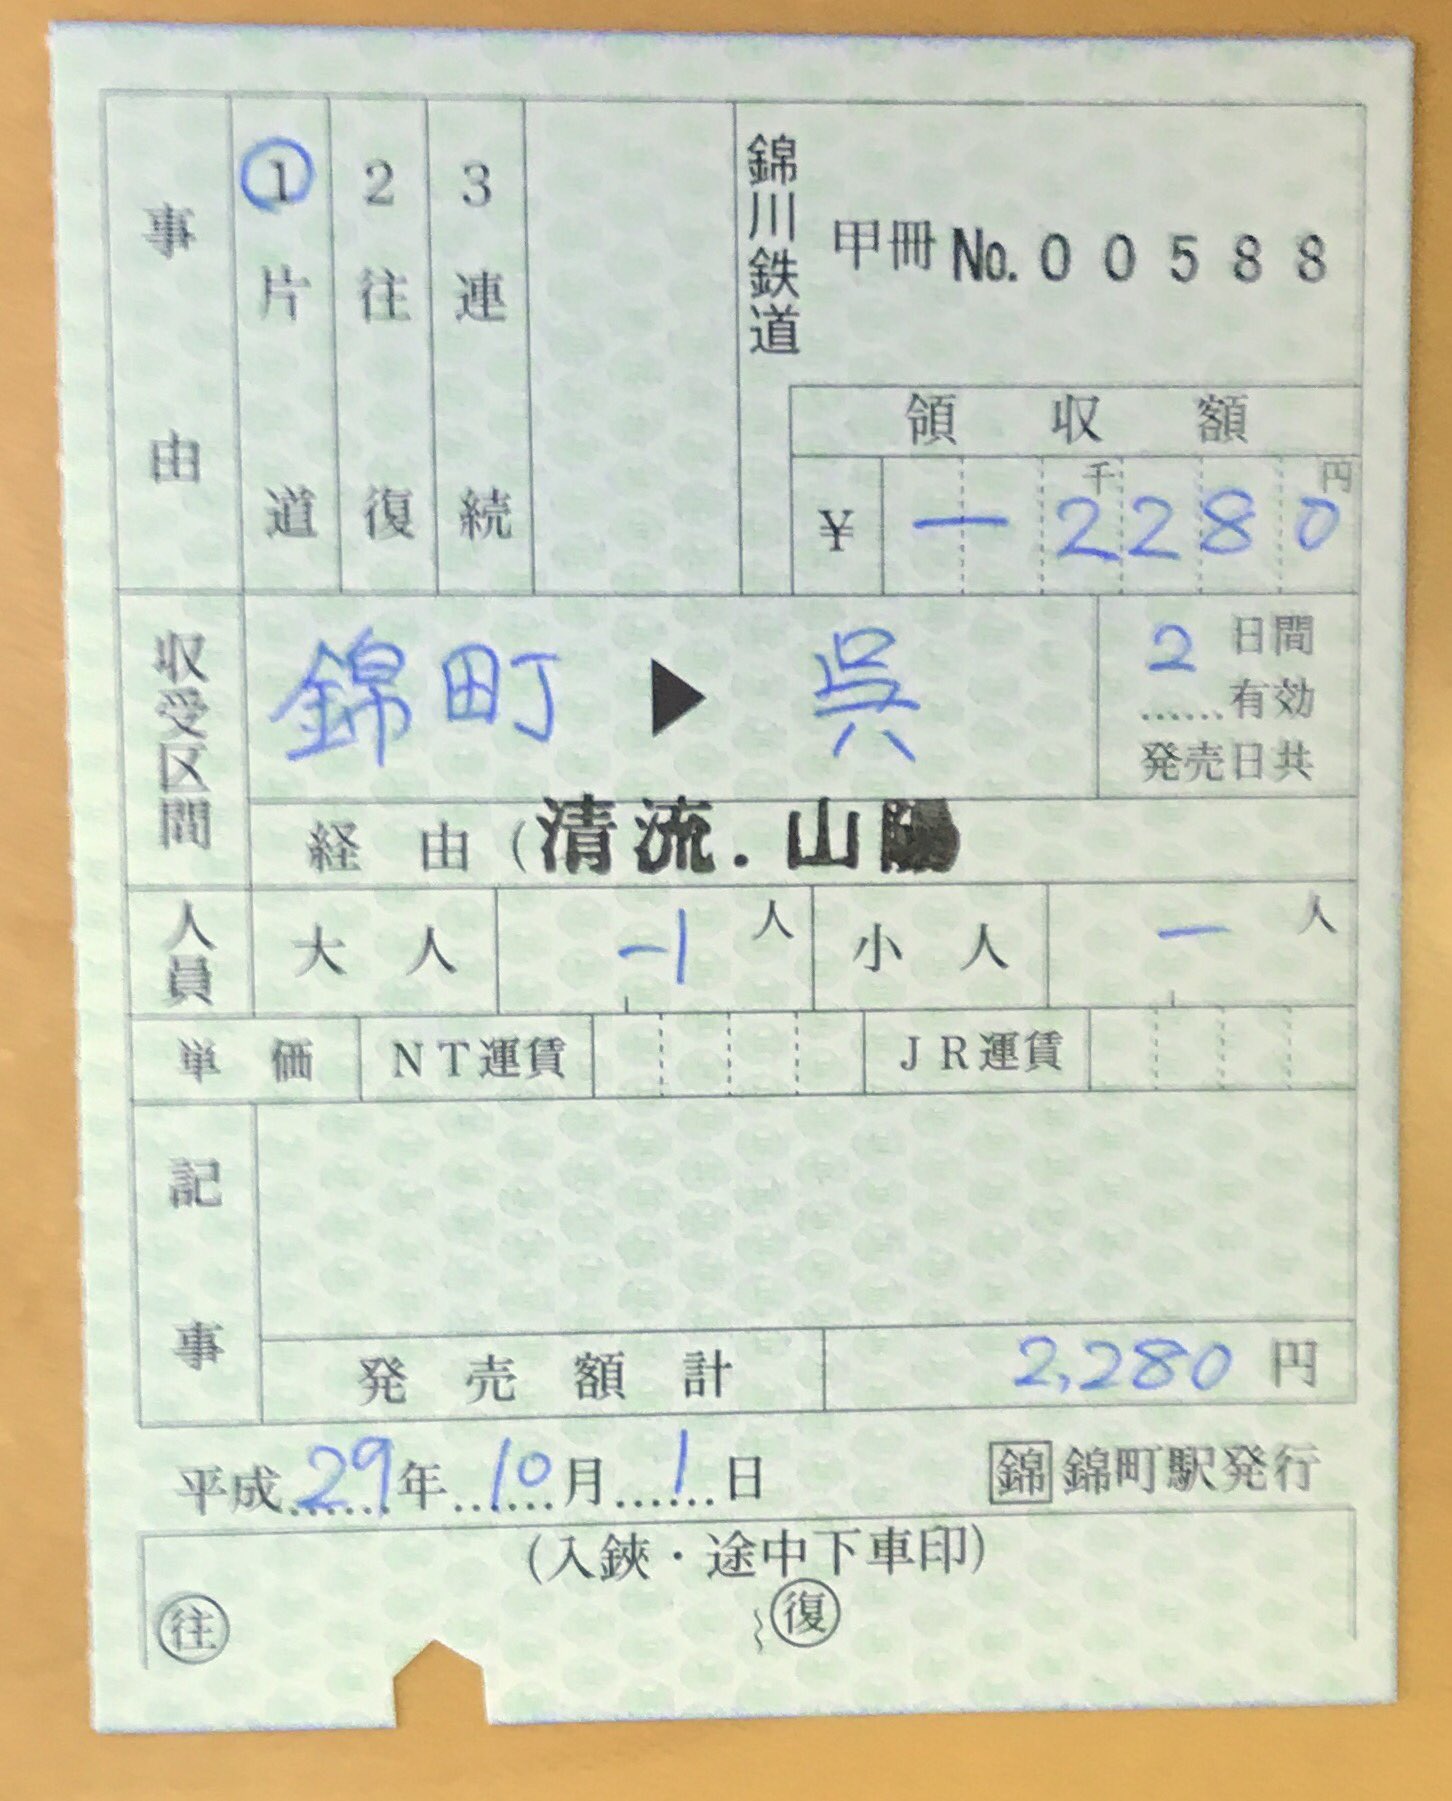 事由
①片道
2往復
3連続
錦川鉄道
甲冊 No.00588
領収額
千 円
¥ ー2280
収受区間
錦町 ▶ 呉
2日間
......有効
発売日共
経由(清流.山陽
人員 大人 -1人 小人 ー人
単価 NT運賃 JR運賃
記事
発売額計 2,280円
平成29年10月1日 錦 錦町駅発行
(入鋏・途中下車印)
往 〜復